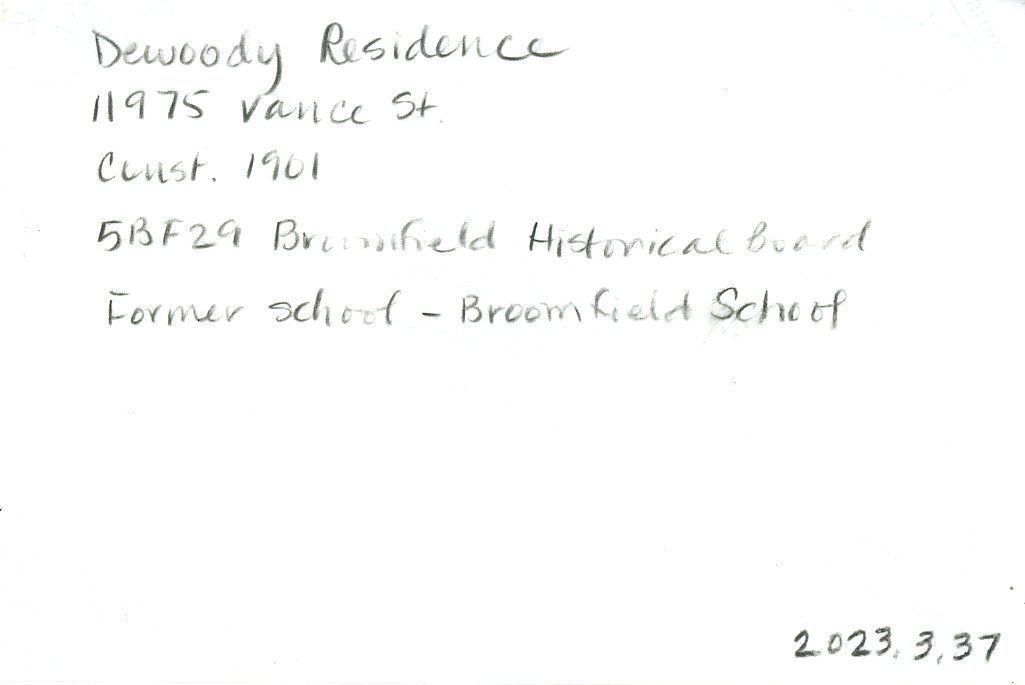 Dewoody Residence
11975 Vance St.
Const. 1901
5BF29 Broomfield Historical Board
Former school - Broomfield School
2023.3.37